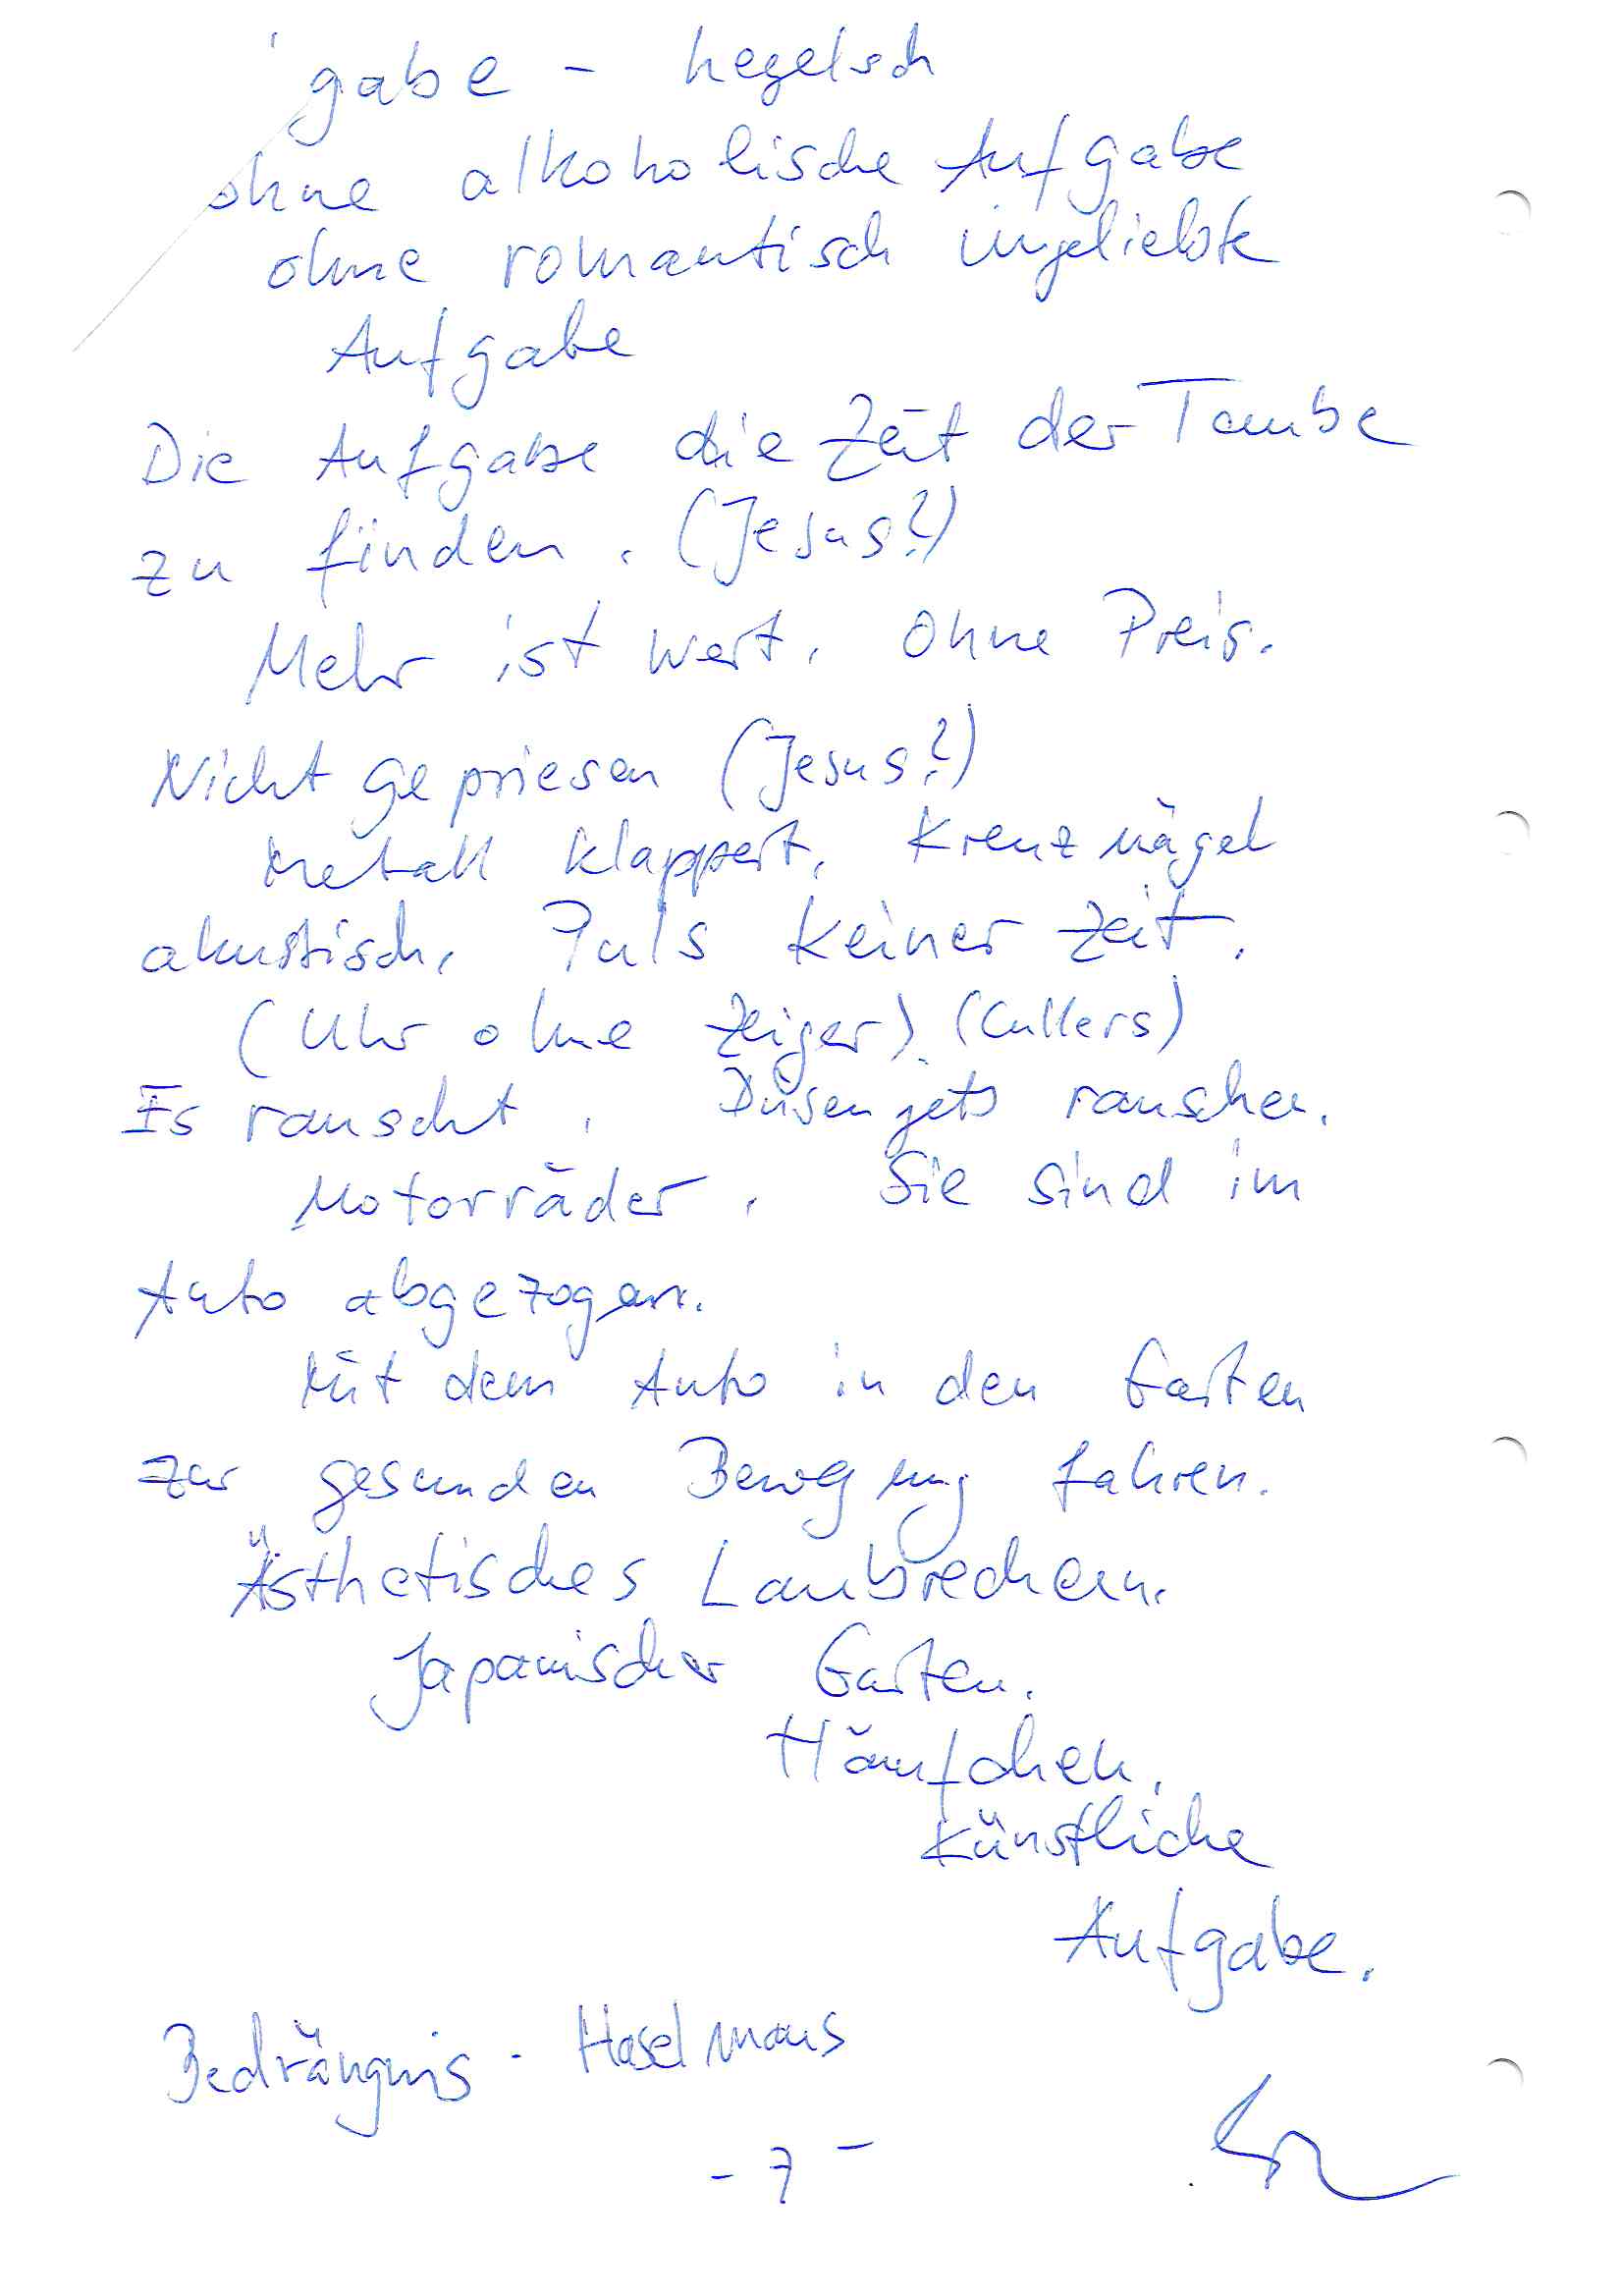 gabe - hegelsch
ohne alkoholische Aufgabe
ohne romantisch ungeliebte
Aufgabe
Die Aufgabe die Zeit der Taube
zu finden. (Jesus?)
Mehr ist Wert. Ohne Preis.
Nicht gepriesen (Jesus?)
Metall klappert. Kreuznägel
akustisch. Puls keiner Zeit.
(Uhr ohne Zeiger). (Cullers)
Es rauscht. Düsenjets rauschen.
Motorräder. Sie sind im
Auto abgezogen.
Mit dem Auto in den Garten
zur gesunden Bewegung fahren.
Ästhetisches Laubrechen.
Japanischer Garten.
Häufchen.
Künstliche
Aufgabe.
Bedrängnis - Haselmaus
- 7 -